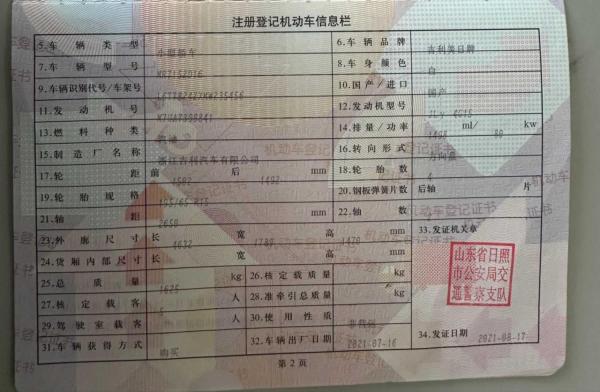 注册登记机动车信息栏
5.车辆类型 小型轿车 6.车辆品牌 吉利美日牌
7.车辆型号 8.车身颜色 白
9.车辆识别代号/车架号 10.国产/进口 国产
11.发动机号 12.发动机型号
13.燃料种类 汽油 14.排量/功率 ml/ kw
15.制造厂名称 浙江吉利汽车有限公司 16.转向形式 方向盘
17.轮距 前 1502 后 1492 mm 18.轮胎数 4
19.轮胎规格 195/65 R15 20.钢板弹簧片数 后轴 片
21.轴距 2650 mm 22.轴数
23.外廓尺寸 长 4632 宽 1789 高 1470 mm 33.发证机关章
24.货厢内部尺寸 长 宽 高 mm
山东省日照
市公安局交
通警察支队
25.总质量 1625 kg 26.核定载质量 kg
27.核定载客 5 人 28.准牵引总质量 kg
29.驾驶室载客 人 30.使用性质 非营运
31.车辆获得方式 购买 32.车辆出厂日期 2021-07-16 34.发证日期 2021-08-17
第2页